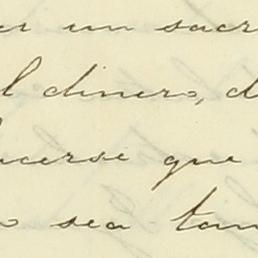 un sacr
l dinero, d
cerse que
o sea tan